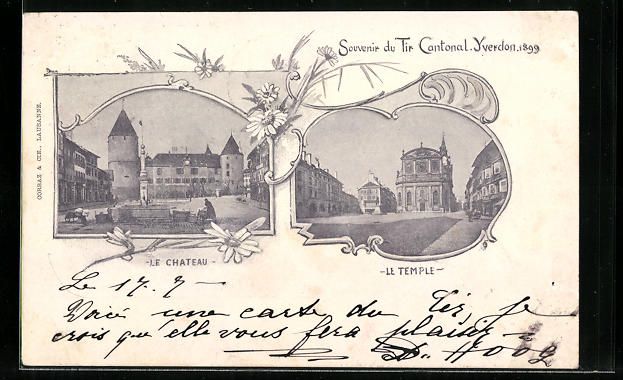 Souvenir du Tir Cantonal. Yverdon. 1899
CORBAZ & CIE., LAUSANNE.
- LE CHATEAU -
- LE TEMPLE -
Le 17. 7 -
Voici une carte du Tir, je
crois qu'elle vous fera plaisir -